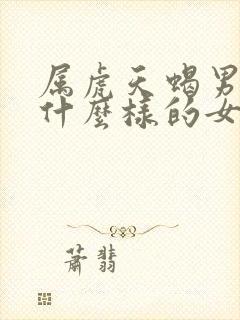 属虎天蝎男
什麼樣的女
蕭翡